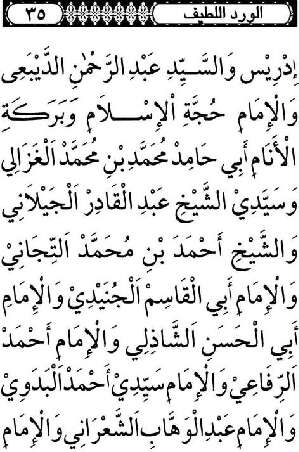 الورد اللطيف ٣٥
اِدْرِيْس وَالسَّيِّدِ عَبْدِ الرَّحْمٰنِ الدَّيْبَعِى
وَالْإِمَامِ حُجَّةِ الْإِسْلَامِ وَبَرَكَةِ
الْأَنَامِ أَبِي حَامِدْ مُحَمَّدِبْنِ مُحَمَّدْ اَلْغَزَالِي
وَسَيِّدِي الشَّيْخِ عَبْدِ الْقَادِرْ اَلْجَيْلَانِي
وَالشَّيْخِ أَحْمَدَ بْنِ مُحَمَّدْ اَلتِّجَانِي
وَالْإِمَامِ أَبِي الْقَاسِمْ اَلْجُنَيْدِي وَالْإِمَامِ
أَبِي الْحَسَنِ الشَّاذِلِي وَالْإِمَامِ أَحْمَدْ
اَلرِّفَاعِيْ وَالْإِمَامِ سَيِّدِيْ أَحْمَدْ اَلْبَدَوِيْ
وَالْإِمَامِ عَبْدِالْوَهَّابِ اَلشَّعْرَانِي وَالْإِمَامِ